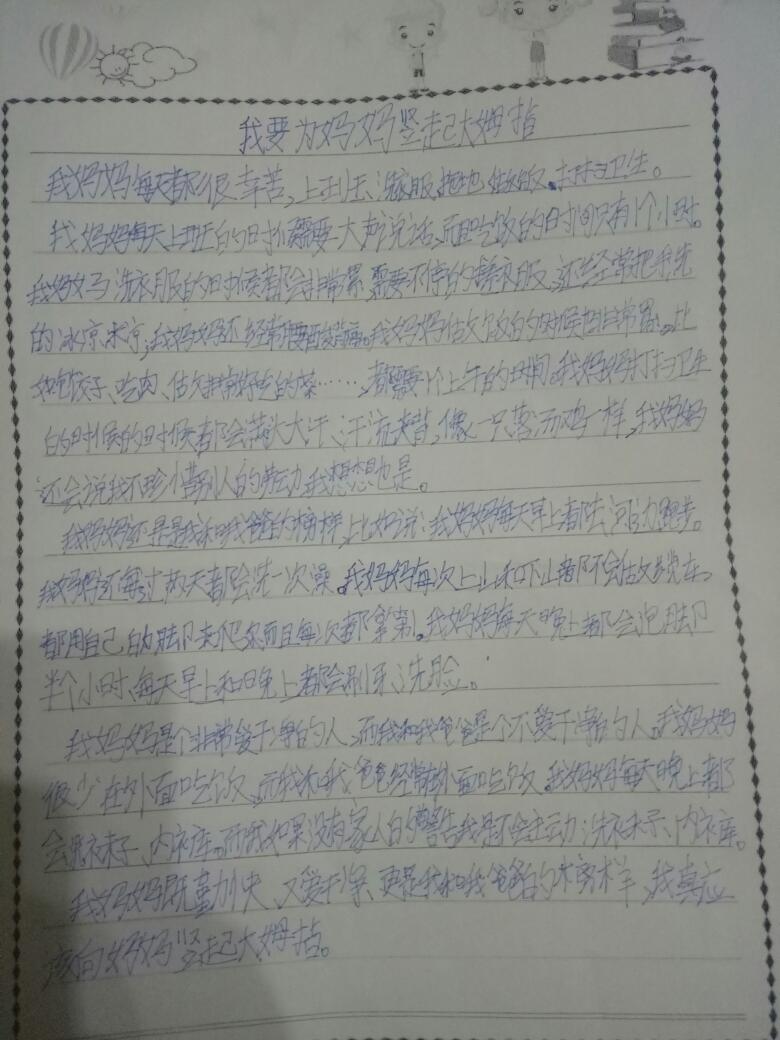 我要为妈妈竖起大姆指
我妈妈每天都很辛苦,上班、洗衣服、拖地、做饭、打扫卫生。
我妈妈每天上班的时候需要大声说话,而吃饭的时间只有1个小时。
我妈妈洗衣服的时候都会非常累,需要不停的搓衣服,还经常把手洗
的冰凉冰凉,我妈妈还经常腰酸背痛。我妈妈做饭的时候也非常累,比
如包饺子、吃肉、做非常好吃的菜……,都需要1个上午的时间。我妈妈打扫卫生
的时候的时候都会满头大汗、汗流夹背,像一只落汤鸡一样,我妈妈
还会说我不珍惜别人的劳动,我想想也是。
我妈妈还是我和我爸爸的榜样,比如说:我妈妈每天早上都去河边跑步。
我妈妈还每过两天都会洗一次澡。我妈妈每次上山和下山都不会做缆车,
都用自己的脚来爬,而且每次都拿第1。我妈妈每天晚上都会泡脚
半个小时,每天早上和晚上都会刷牙、洗脸。
我妈妈是个非常爱干净的人,而我和我爸爸是个不爱干净的人。我妈妈
很少在外面吃饭,而我和我爸爸经常在外面吃饭。我妈妈每天晚上都
会洗袜子、内衣库。而我如果没有家人的警告我是不会主动洗袜子、内衣库。
我妈妈既勤快,又爱干净,更是我和我爸爸的榜样,我真应
该向妈妈竖起大姆指。